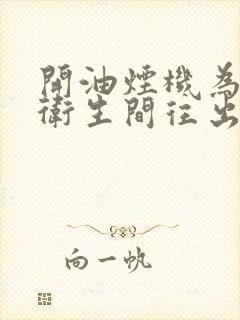 開油煙機為
衛生間往出
向一帆